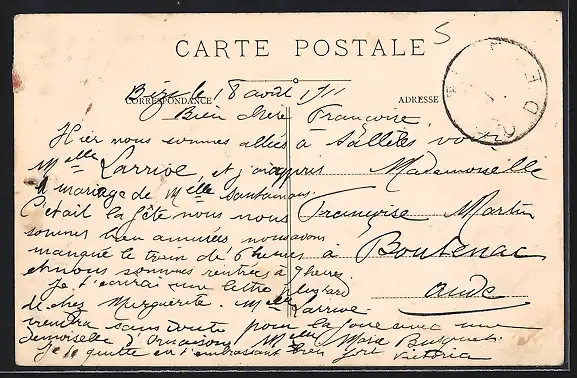 CARTE POSTALE
Bize le 18 août 1911
CORRESPONDANCE
ADRESSE
Bien chère Françoise,
Hier nous sommes allées à Sallèles voir
Melle Larrive, et j'ai appris
le mariage de Melle
C'était la fête nous nous
sommes bien amusées nous avons
manqué le train de 6 heures
et nous sommes rentrées à 9 heures
je t'écrirai une lettre plus tard
de chez Marguerite. Melle Larrive
viendra sans doute pour la foire avec une
demoiselle d'Ornaisons Melle Marie
Je te quitte en t'embrassant bien fort Victoria
Mademoiselle
Françoise Martin
à Boutenac
Aude